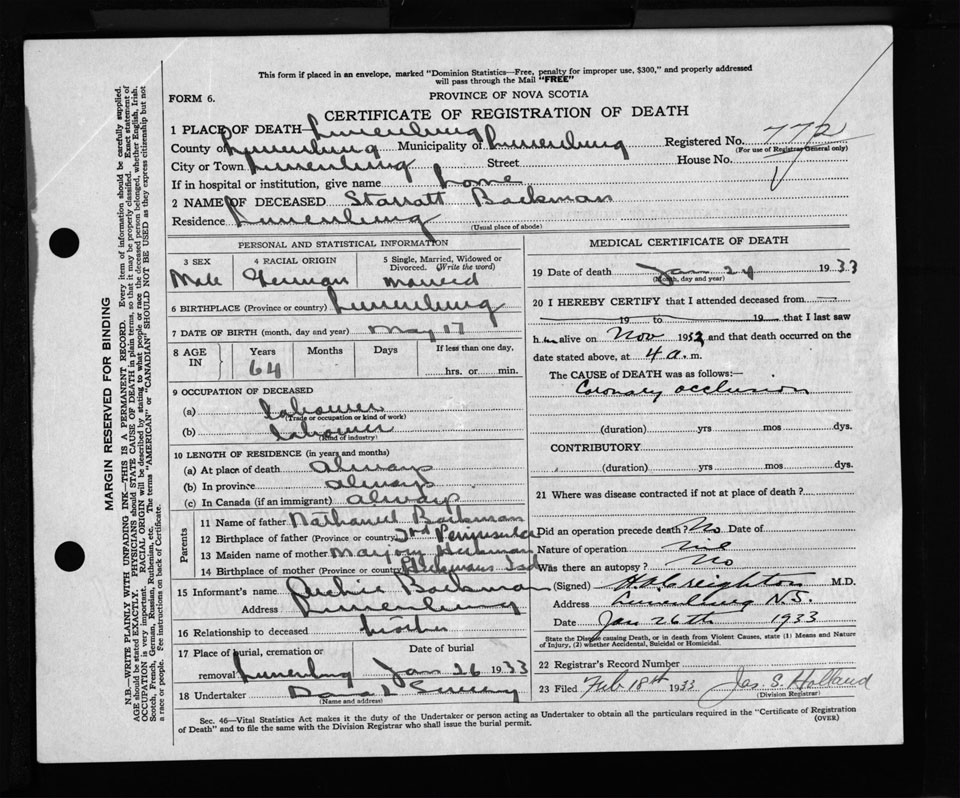 This form if placed in an envelope, marked "Dominion Statistics—Free, penalty for improper use, $300," and properly addressed
will pass through the Mail "FREE"
FORM 6.
PROVINCE OF NOVA SCOTIA
CERTIFICATE OF REGISTRATION OF DEATH
1 PLACE OF DEATH— Lunenburg
County of Lunenburg Municipality of Lunenburg Registered No. 772
(For use of Registrar General only)
City or Town Lunenburg Street House No.
If in hospital or institution, give name home
2 NAME OF DECEASED Starratt Backman
Residence Lunenburg
(Usual place of abode)
PERSONAL AND STATISTICAL INFORMATION
3 SEX 4 RACIAL ORIGIN 5 Single, Married, Widowed or Divorced. (Write the word)
Male German Married
6 BIRTHPLACE (Province or country) Lunenburg
7 DATE OF BIRTH (month, day and year) May 17
8 AGE IN Years Months Days If less than one day,
64 hrs. or min.
9 OCCUPATION OF DECEASED
(a) labourer
(Trade or occupation or kind of work)
(b) labourer
(Kind of industry)
10 LENGTH OF RESIDENCE (in years and months)
(a) At place of death always
(b) In province always
(c) In Canada (if an immigrant) always
Parents
11 Name of father Nathaniel Backman
12 Birthplace of father (Province or country) 2nd Peninsula
13 Maiden name of mother Marjory Heckman
14 Birthplace of mother (Province or country) Heckmans Isd
15 Informant's name Archie Backman
Address Lunenburg
16 Relationship to deceased brother
17 Place of burial, cremation or Date of burial
removal Lunenburg Jan 26 1933
18 Undertaker
(Name and address)
MEDICAL CERTIFICATE OF DEATH
19 Date of death Jan 24 1933
(Month, day and year)
20 I HEREBY CERTIFY that I attended deceased from
19 to 19 that I last saw
h im alive on Nov 1932 and that death occurred on the
date stated above, at 4 a. m.
The CAUSE of DEATH was as follows:—
Coronary occlusion
(duration) yrs mos dys.
CONTRIBUTORY
(duration) yrs mos dys.
21 Where was disease contracted if not at place of death?
Did an operation precede death? No Date of
Nature of operation nil
Was there an autopsy? No
(Signed) H.A. Creighton M.D.
Address Lunenburg N.S.
Date Jan 26th 1933
State the Disease causing Death, or in death from Violent Causes, state (1) Means and Nature
of Injury, (2) whether Accidental, Suicidal or Homicidal.
22 Registrar's Record Number
23 Filed Feb 18th 1933 Jas. S. Holland
(Division Registrar)
Sec. 46—Vital Statistics Act makes it the duty of the Undertaker or person acting as Undertaker to obtain all the particulars required in the "Certificate of Registration
of Death" and to file the same with the Division Registrar who shall issue the burial permit. (OVER)
MARGIN RESERVED FOR BINDING
N.B.—WRITE PLAINLY WITH UNFADING INK—THIS IS A PERMANENT RECORD. Every item of information should be carefully supplied.
AGE should be stated EXACTLY. PHYSICIANS should STATE CAUSE OF DEATH in plain terms, so that it may be properly classified. Exact statement of
OCCUPATION is very important. RACIAL ORIGIN will be described by stating to what people or race the deceased person belonged, whether English, Irish,
Scotch, French, German, Russian, Ruthenian, etc. The terms "AMERICAN" or "CANADIAN" SHOULD NOT BE USED as they express citizenship but not
a race or people. See instructions on back of Certificate.